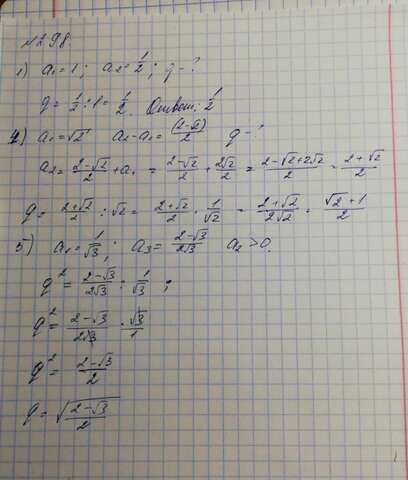 №298.
1) a₁ = 1; a₂ = 1/2; q - ?
q = 1/2 : 1 = 1/2. Ответ: 1/2
4) a₁ = √2 a₂ - a₁ = (2-√2)/2 q - ?
a₂ = (2-√2)/2 + a₁ = (2-√2)/2 + 2√2/2 = (2-√2+2√2)/2 = (2+√2)/2
q = (2+√2)/2 : √2 = (2+√2)/2 · 1/√2 = (2+√2)/(2√2) = (√2+1)/2
5) a₁ = 1/√3; a₃ = (2-√3)/(2√3) a₂ > 0.
q² = (2-√3)/(2√3) : 1/√3;
q² = (2-√3)/(2√3) · √3/1
q² = (2-√3)/2
q = √((2-√3)/2)